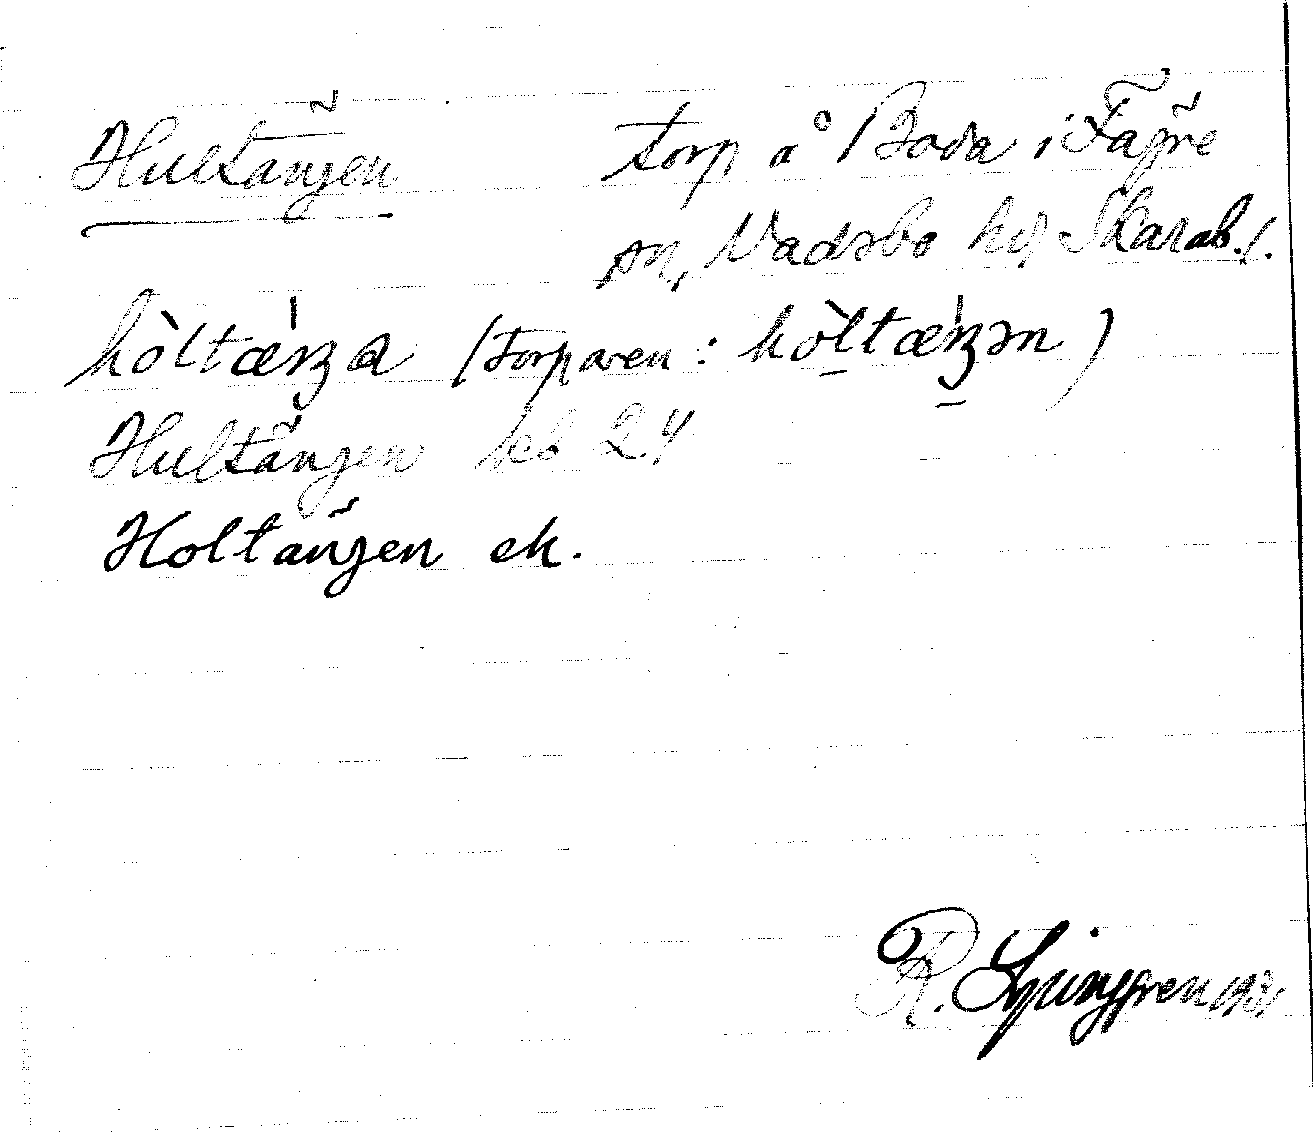 Hultängen torp å Boda i Fägre
sn, Vadsbo hd, Skarab. l.
hòltæŋa (torparen: hòltæŋən)
Hultängen kb 24
Holtängen ek.
R. Ljunggren 1931